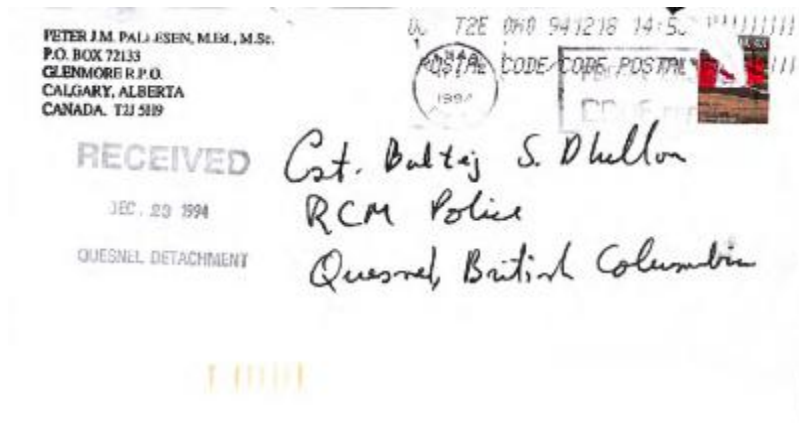 PETER J.M. PALLESEN, M.Ed., M.Sc.
P.O. BOX 72133
GLENMORE R.P.O.
CALGARY, ALBERTA
CANADA. T2J 5H9
T2E 0K0 941218 14:5
POSTAL CODE/CODE POSTAL
RECEIVED
DEC. 23 1994
QUESNEL DETACHMENT
Cst. Baltej S. Dhillon
RCM Police
Quesnel, British Columbia